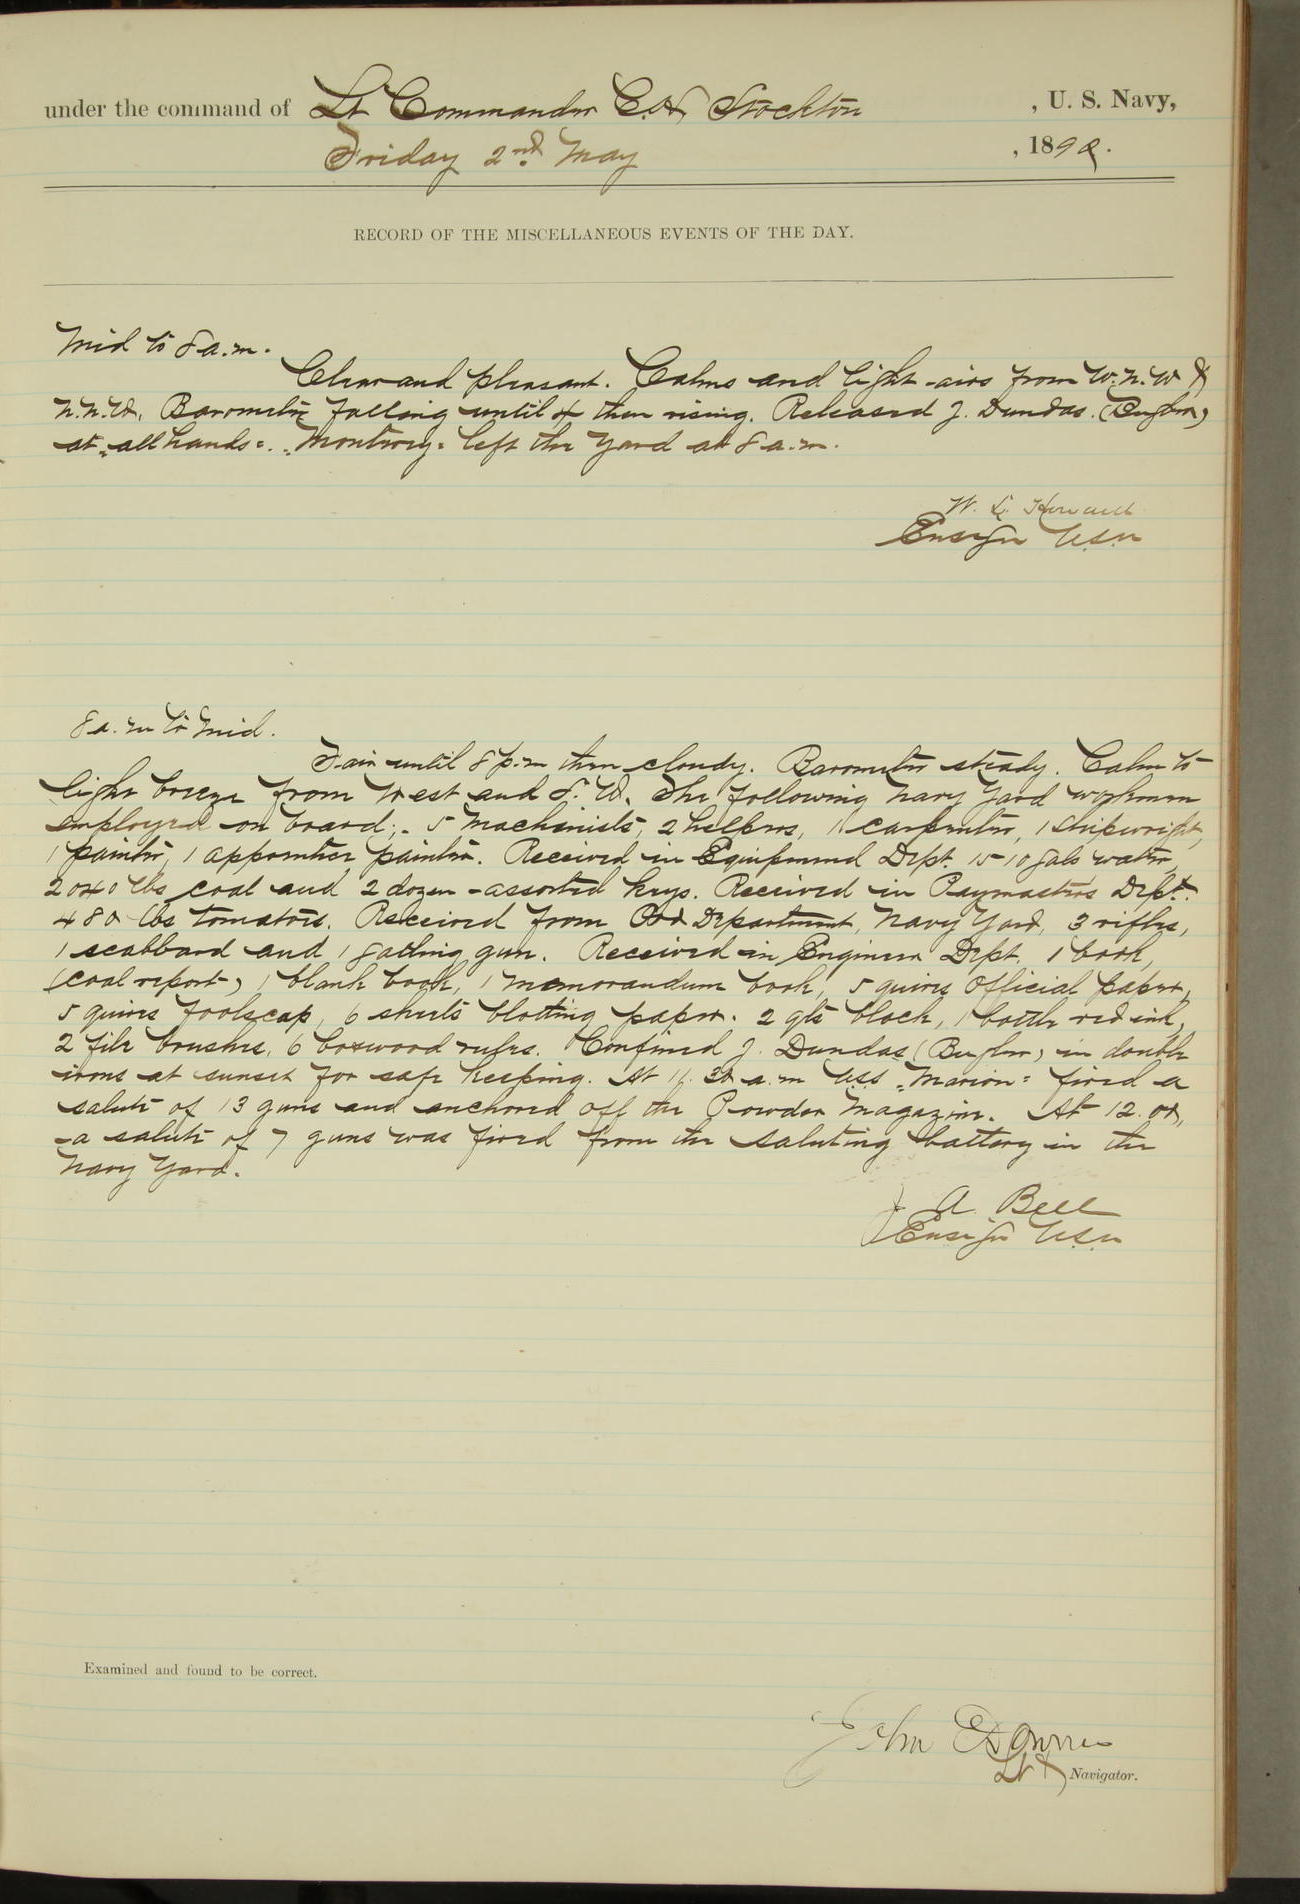 under the command of Lt Commander C. H. Stockton , U. S. Navy,
Friday 2nd May , 1890.
RECORD OF THE MISCELLANEOUS EVENTS OF THE DAY.
Mid to 8 a.m.
Clear and pleasant. Calms and light airs from W.N.W &
N.N.W. Barometer falling until 4 then rising. Released J. Dundas. (Bugler)
at "all hands". "Monterey" left the Yard at 8 a.m.
W. L. Howard
Ensign USN
8 a.m to mid.
Fair until 8 p.m then cloudy. Barometer steady. Calm to
light breeze from West and S. W. The following Navy Yard workmen
employed on board;- 5 machinists, 2 helpers, 1 carpenter, 1 shipwright,
1 painter, 1 apprentice painter. Received in Equipment Dept. 1510 gals water,
2040 lbs coal and 2 dozen assorted keys. Received in Paymasters Dept.
480 lbs tomatoes. Received from Ord Department, Navy Yard, 3 rifles,
1 scabbard and 1 gatling gun. Received in Engineer Dept. 1 book,
(coal report) 1 blank book, 1 memorandum book, 5 quires official paper,
5 quires foolscap, 6 sheets blotting paper. 2 qts black, 1 bottle red ink,
2 file brushes, 6 boxwood rules. Confined J. Dundas (Bugler) in double
irons at sunset for safe keeping. At 11.30 a.m USS "Marion" fired a
salute of 13 guns and anchored off the Powder Magazine. At 12.00,
a salute of 7 guns was fired from the saluting battery in the
Navy Yard.
J A Bell
Ensign USN
Examined and found to be correct.
John Downes
Lt & Navigator.